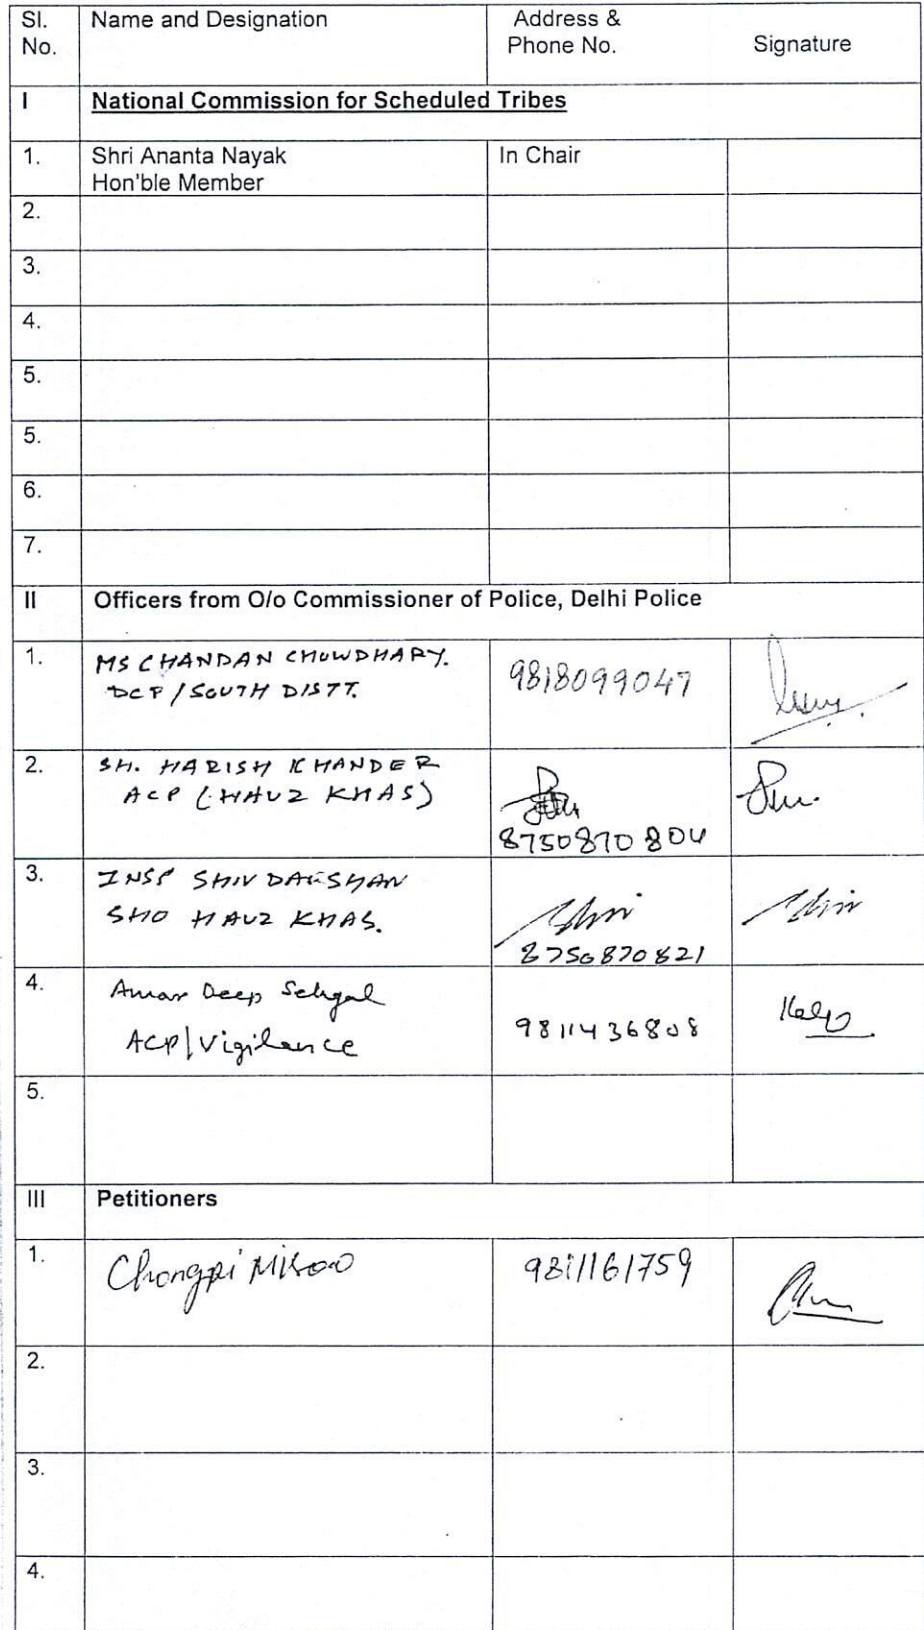 Sl. Name and Designation Address &
No. Phone No. Signature
I National Commission for Scheduled Tribes
1. Shri Ananta Nayak In Chair
Hon'ble Member
2.
3.
4.
5.
5.
6.
7.
II Officers from O/o Commissioner of Police, Delhi Police
1. MS CHANDAN CHOWDHARY. 9818099047
DCP/SOUTH DISTT.
2. SH. HARISH KHANDER
ACP (HAUZ KHAS)
8750870804
3. INSP SHIV DARSHAN
SHO HAUZ KHAS.
8750870821
4. Amar Deep Sehgal
ACP/Vigilance 9811436808
5.
III Petitioners
1. Chongpi 9811161759
2.
3.
4.